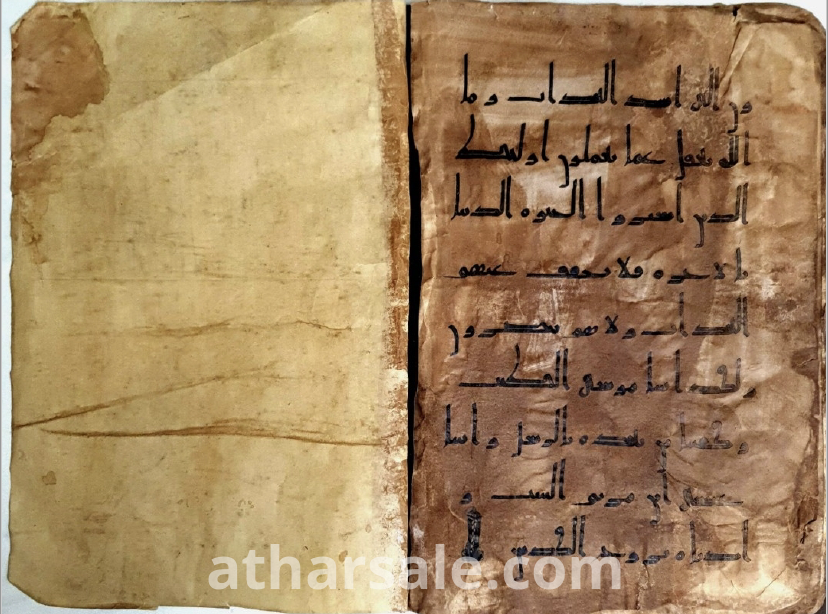 ون الى اشد العذاب و ما
الله بغفل عما تعملون اولئك
الذين اشتروا الحيوه الدنيا
بالاخره فلا يخفف عنهم
العذاب ولا هم ينصرون
ولقد اتينا موسى الكتب
وقفينا من بعده بالرسل و اتينا
عيسى ابن مريم البينت و
ايدناه بروح القدس
atharsale.com